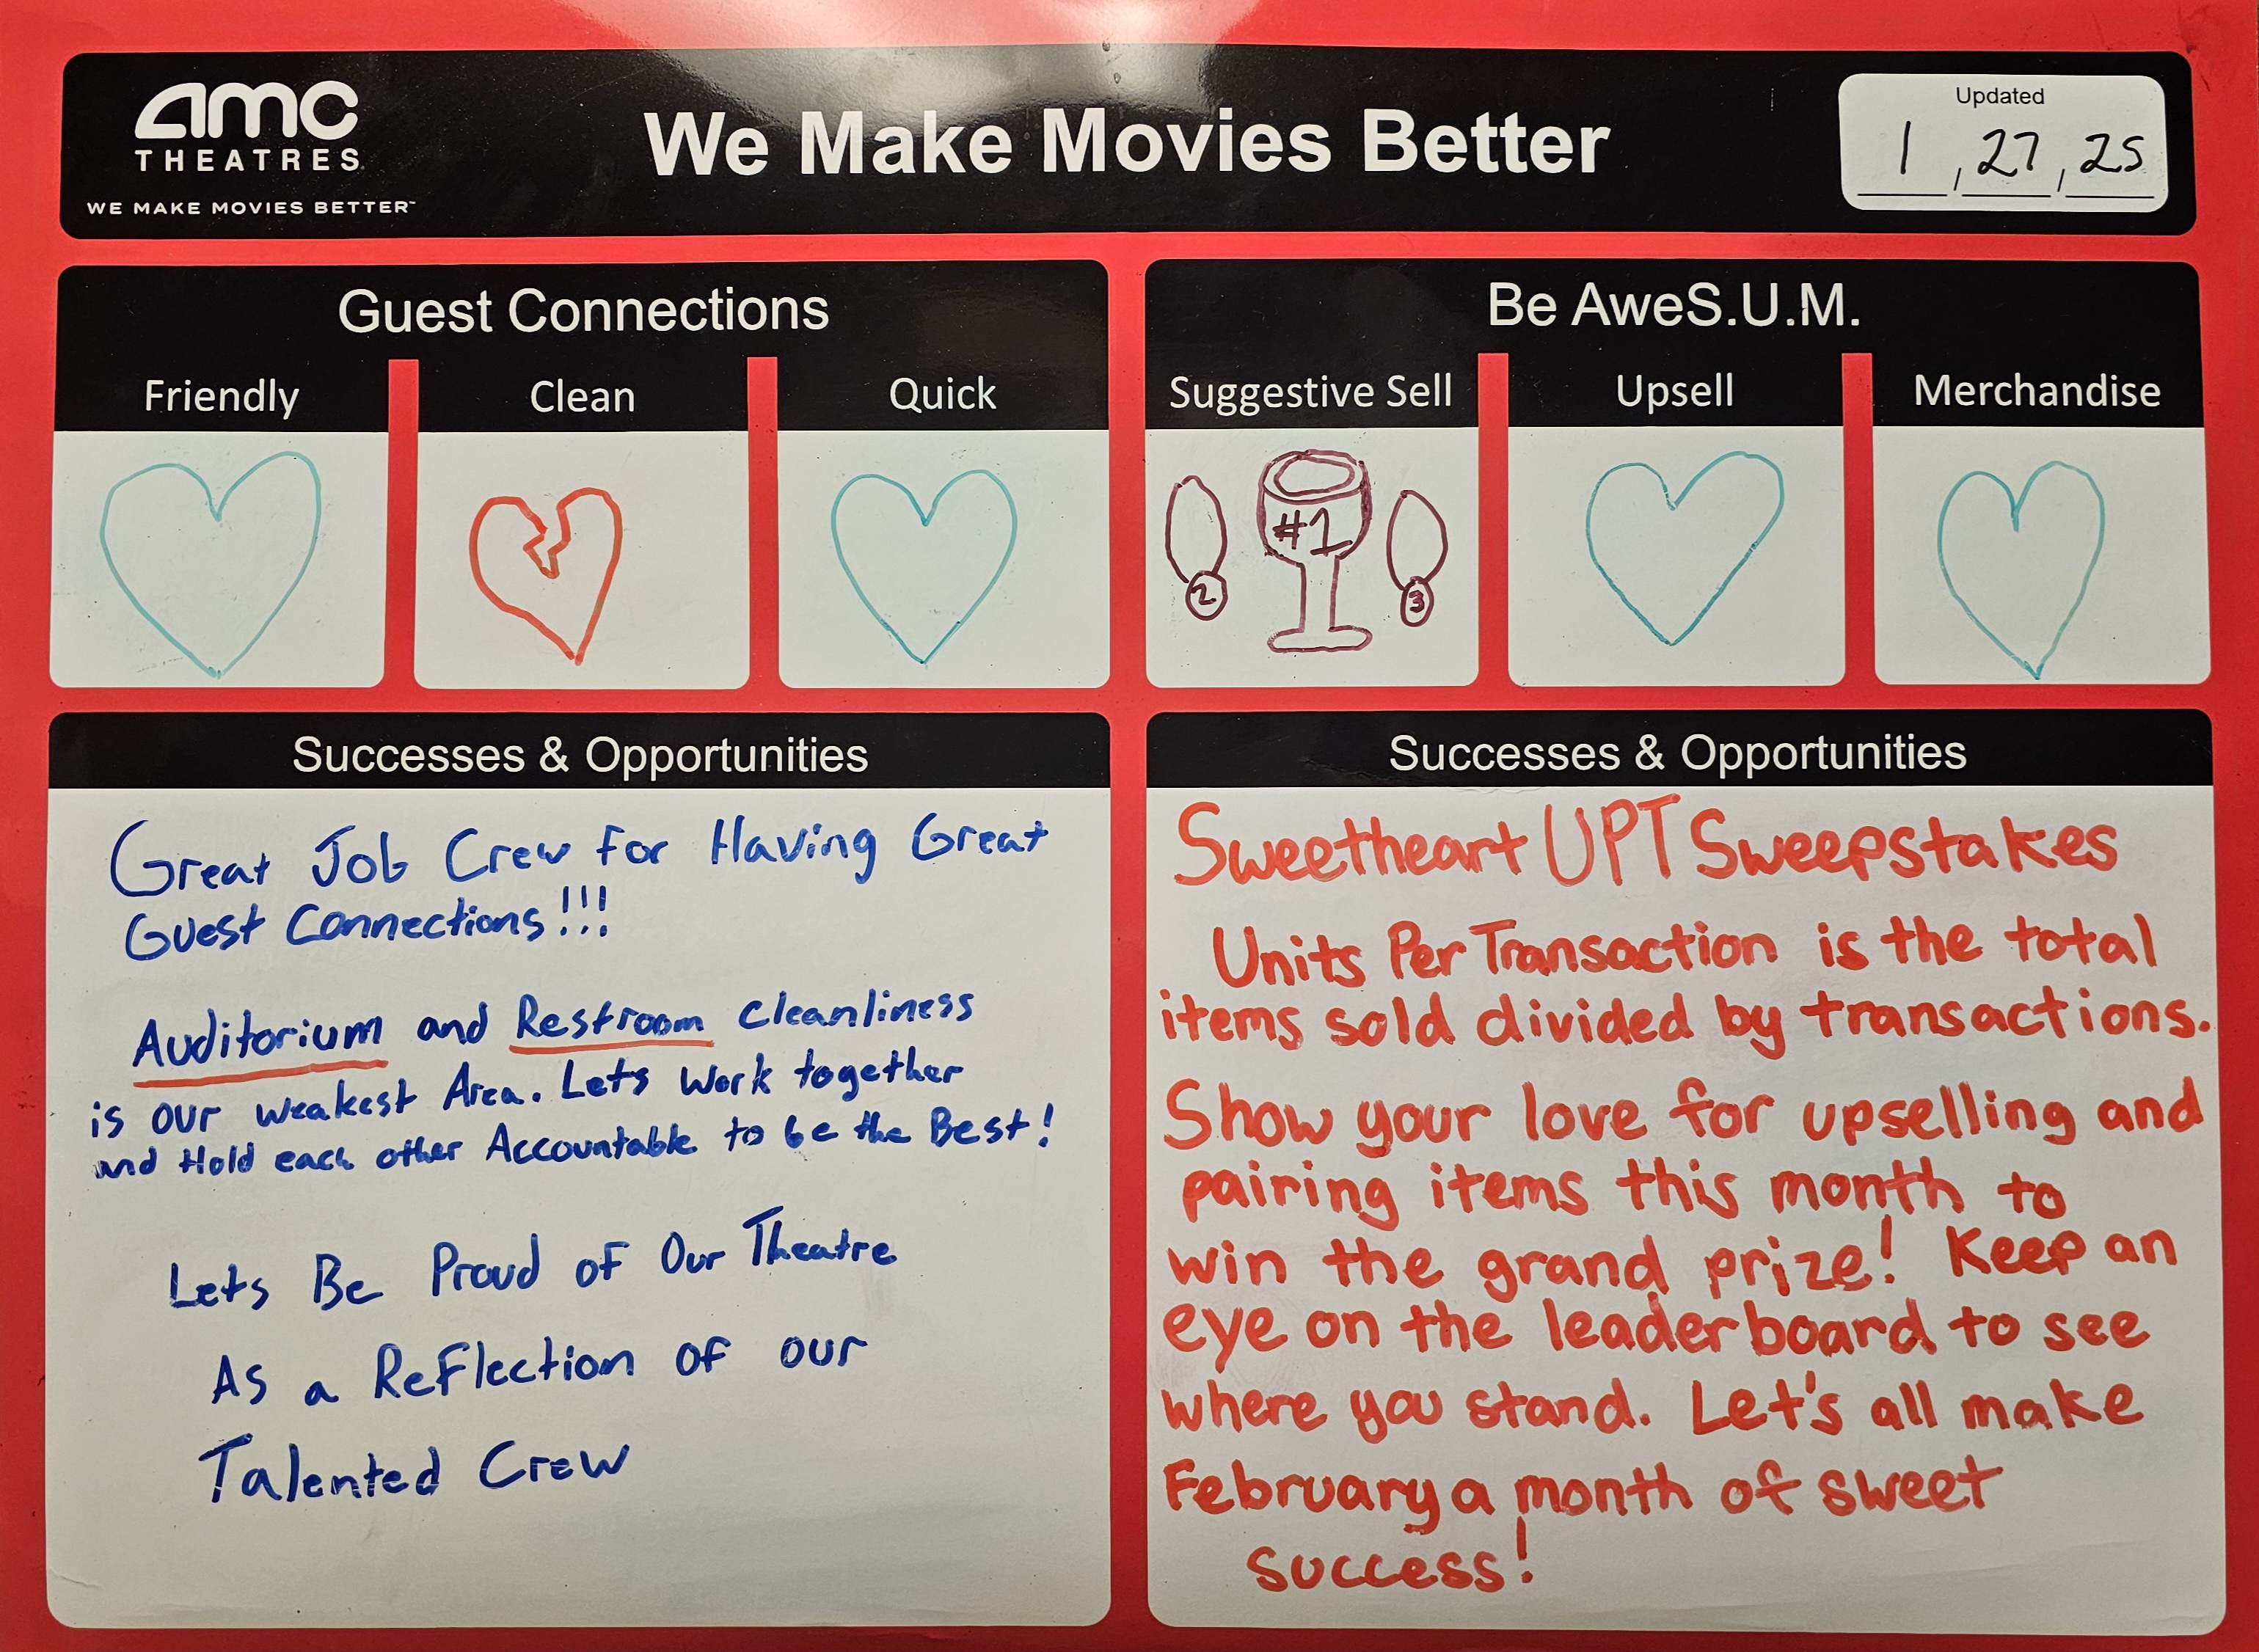 amc
THEATRES
WE MAKE MOVIES BETTER™
We Make Movies Better
Updated
1, 27, 25
Guest Connections
Friendly Clean Quick
Be AweS.U.M.
Suggestive Sell Upsell Merchandise
2 #1 3
Successes & Opportunities
Great Job Crew For Having Great
Guest Connections!!!
Auditorium and Restroom cleanliness
is our weakest Area. Lets work together
and Hold each other Accountable to be the Best!
Lets Be Proud of Our Theatre
As a Reflection of our
Talented Crew
Successes & Opportunities
Sweetheart UPT Sweepstakes
Units Per Transaction is the total
items sold divided by transactions.
Show your love for upselling and
pairing items this month to
win the grand prize! Keep an
eye on the leaderboard to see
where you stand. Let's all make
February a month of sweet
success!